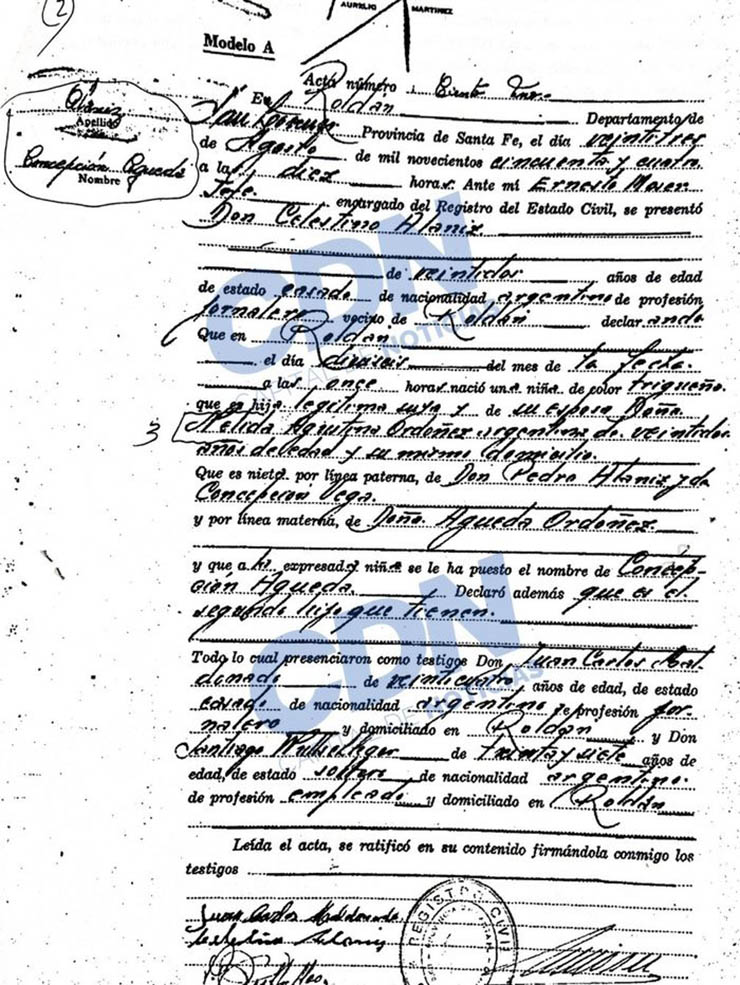 (2)
AURELIO MARTINEZ
Modelo A
Acta número : Ciento Uno
Alaniz
Apellido
Concepción Agueda
Nombre
En Roldán Departamento de
San Lorenzo Provincia de Santa Fe, el día veintitres
de Agosto de mil novecientos cincuenta y cuatro
a las diez horas. Ante mí Ernesto
Jefe encargado del Registro del Estado Civil, se presentó
Don Celestino Alaniz
de veintidos años de edad
de estado casado de nacionalidad argentino de profesión
jornalero vecino de Roldán declarando
Que en Roldán
el día dieciseis del mes de la fecha
a las once horas nació una niña de color trigueño
que es hija legítima suya y de su esposa Doña
3 Nelida Agustina Ordoñez argentina de veintidos
años de edad y su mismo domicilio.
Que es nieta por línea paterna, de Don Pedro Alaniz y de
Concepcion Vega.
y por línea materna, de Doña Agueda Ordoñez.
y que a la expresada niña se le ha puesto el nombre de Concep-
ción Agueda Declaró además que es el
segundo hijo que tienen.
Todo lo cual presenciaron como testigos Don Juan Carlos Mal
donado de veinticuatro años de edad, de estado
casado de nacionalidad argentino de profesión jor
nalero y domiciliado en Roldán y Don
Santiago de treinta y siete años de
edad, de estado soltero de nacionalidad argentino.
de profesión empleado y domiciliado en Roldán
Leída el acta, se ratificó en su contenido firmándola conmigo los
testigos
Juan Carlos Maldonado
Celestino Alaniz
REGISTRO CIVIL
CDN
CAPITAL DE NOTICIAS
CDN
CAPITAL DE NOTICIAS